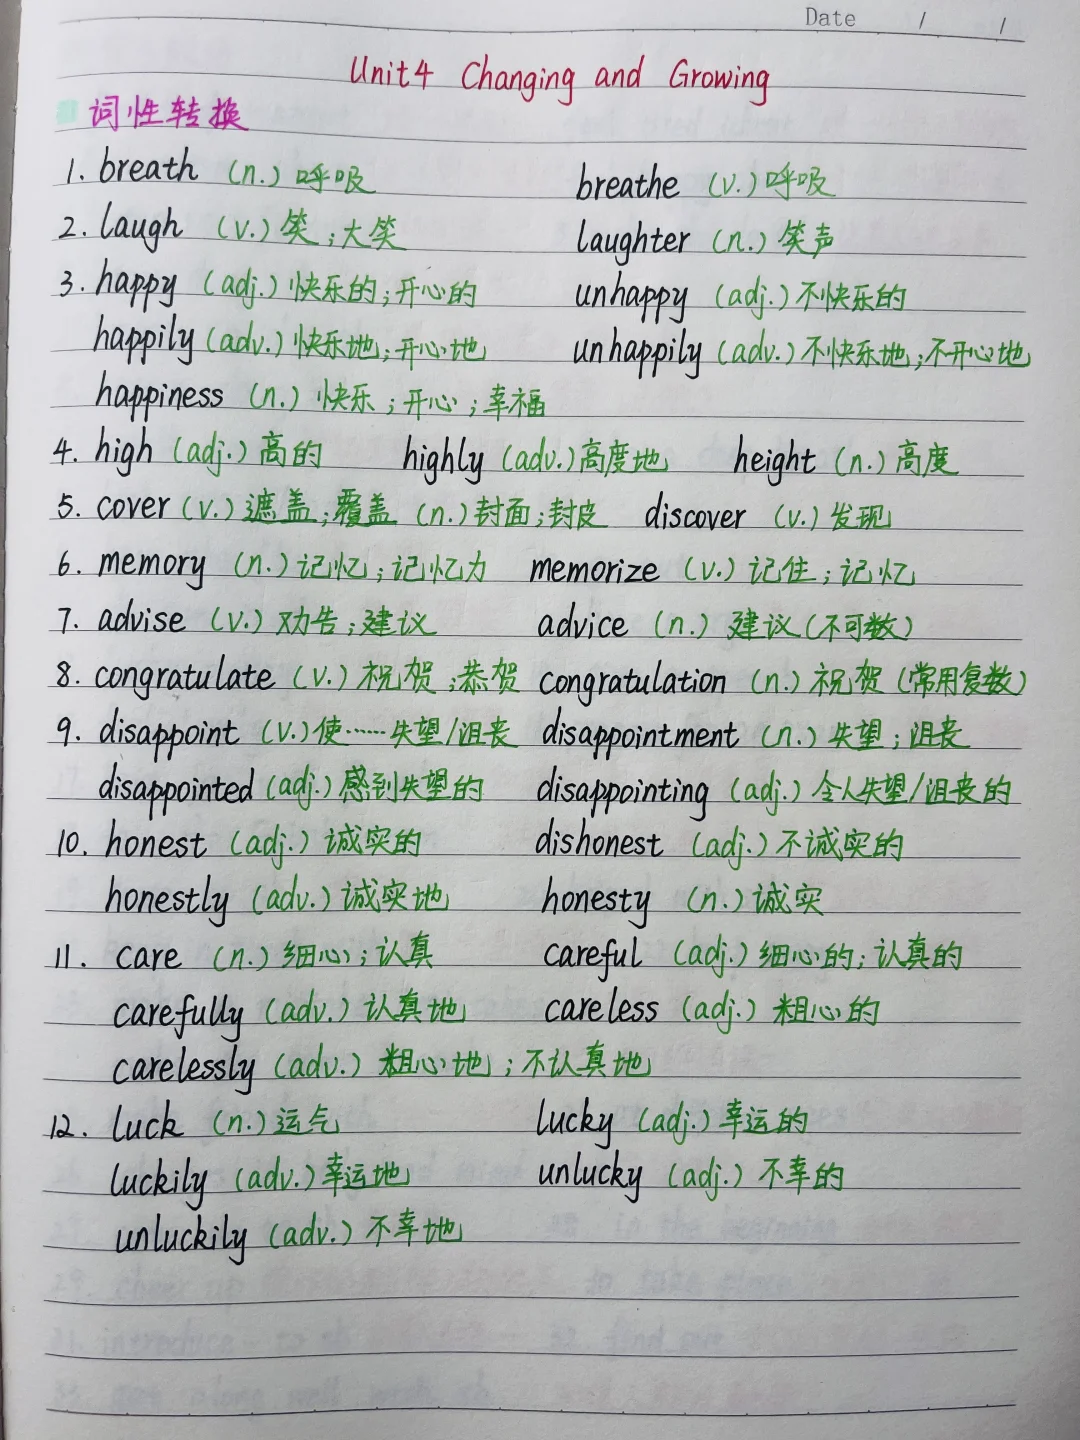 Date / /
Unit4 Changing and Growing
词性转换
1. breath (n.) 呼吸 breathe (v.) 呼吸
2. laugh (v.) 笑;大笑 laughter (n.) 笑声
3. happy (adj.) 快乐的;开心的 unhappy (adj.) 不快乐的
happily (adv.) 快乐地;开心地 unhappily (adv.) 不快乐地;不开心地
happiness (n.) 快乐;开心;幸福
4. high (adj.) 高的 highly (adv.) 高度地 height (n.) 高度
5. cover (v.) 遮盖;覆盖 (n.) 封面;封皮 discover (v.) 发现
6. memory (n.) 记忆;记忆力 memorize (v.) 记住;记忆
7. advise (v.) 劝告;建议 advice (n.) 建议(不可数)
8. congratulate (v.) 祝贺;恭贺 congratulation (n.) 祝贺(常用复数)
9. disappoint (v.) 使……失望/沮丧 disappointment (n.) 失望;沮丧
disappointed (adj.) 感到失望的 disappointing (adj.) 令人失望/沮丧的
10. honest (adj.) 诚实的 dishonest (adj.) 不诚实的
honestly (adv.) 诚实地 honesty (n.) 诚实
11. care (n.) 细心;认真 careful (adj.) 细心的;认真的
carefully (adv.) 认真地 careless (adj.) 粗心的
carelessly (adv.) 粗心地;不认真地
12. luck (n.) 运气 lucky (adj.) 幸运的
luckily (adv.) 幸运地 unlucky (adj.) 不幸的
unluckily (adv.) 不幸地